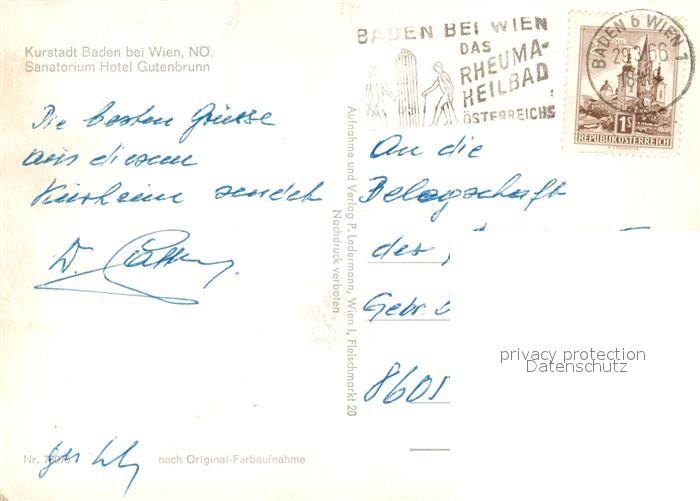 Kurstadt Baden bei Wien, NÖ.
Sanatorium Hotel Gutenbrunn
BADEN BEI WIEN
DAS
RHEUMA-
HEILBAD
ÖSTERREICHS
BADEN 6 WIEN 1
29.3.66
1 S
REPUBLIK ÖSTERREICH
Die besten Grüsse
aus diesem
Kurheim sendet
Aufnahme und Verlag P. Ledermann, Wien I, Fleischmarkt 20
Nachdruck verboten
An die
Belegschaft
der
Gebr.
8605
privacy protection
Datenschutz
Nr.
nach Original-Farbaufnahme